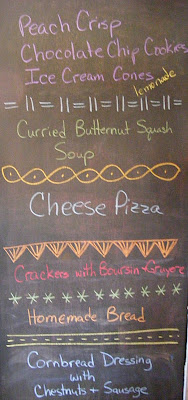 Peach Crisp
Chocolate Chip Cookies
Ice Cream Cones
lemonade
Curried Butternut Squash
Soup
Cheese Pizza
Crackers with Boursin + Gruyere
Homemade Bread
Cornbread Dressing
with
Chestnuts + Sausage